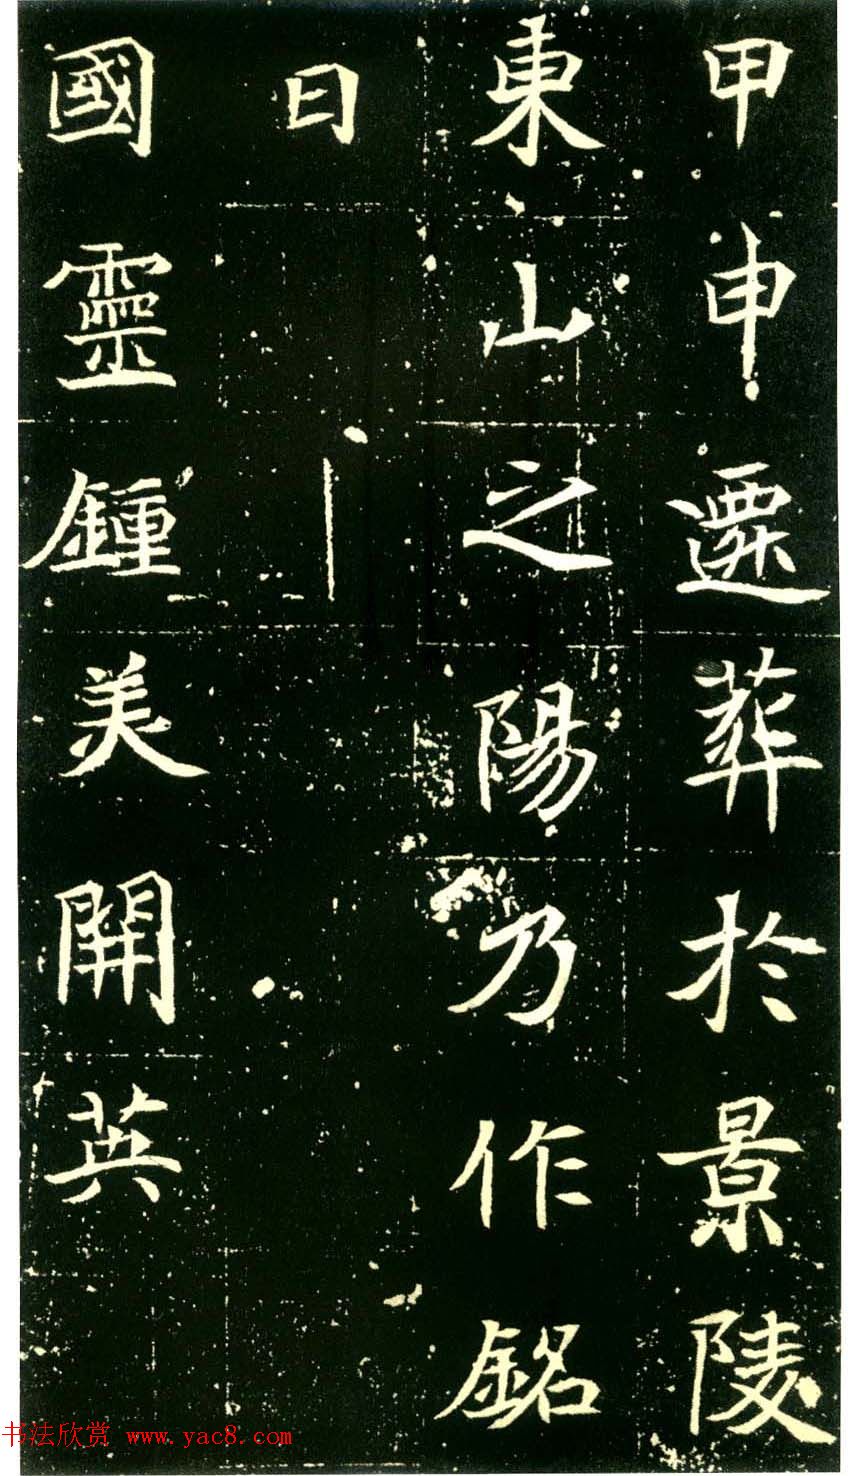 甲申遷葬於景陵
東山之陽乃作銘
曰
國靈鍾美開英
书法欣赏 www.yac8.com